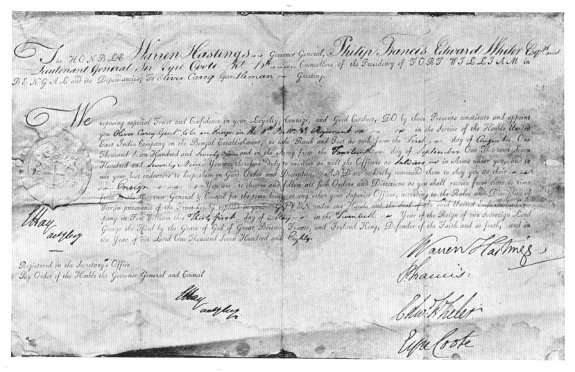 The HONBLE Warren Hastings Governor General, Philip Francis Edward Wheler Esqrs and
Lieutenant General Sir Eyre Coote Kt Counsellors of the Presidency of FORT WILLIAM in
BENGAL and the Dependancies, To Oliver Carey Gentleman Greeting.
We reposing especial Trust and Confidence in your Loyalty, Courage, and Good Conduct, DO by these Presents constitute and appoint
you Oliver Carey Gent. to be an Ensign in the Regiment in the Service of the Honble United
East India Company on the Bengal Establishment, to take Rank and Post as such from the First day of August One
Thousand Seven Hundred and and in the Army from the day of September One Thousand Seven
Hundred and Seventy You are therefore Duly to exercise as well the Officers as Soldiers in Arms under you, and to
use your best endeavors to keep them in Good Order and Discipline. AND we hereby command them to obey you as their
Ensign You are to observe and follow all such Orders and Directions as you shall receive from time to time
from the Governor General & Council for the time being, or any other your Superior Officer, according to the Rules and Discipline of
War in pursuance of the Trust GIVEN under our Hands and the Seal of the said United East India Company
in Fort William this Thirty first day of May in the Twentieth Year of the Reign of our Sovereign Lord
George the Third by the Grace of God of Great Britain, France, and Ireland King, Defender of the Faith and so forth, and in
the Year of our Lord One Thousand Seven Hundred and Eighty.
EHay
actg Secy
Registered in the Secretary's Office
By Order of the Honble the Governor General and Council
EHay
actg Secy
Warren Hastings
P Francis
Edwd Wheler
Eyre Coote